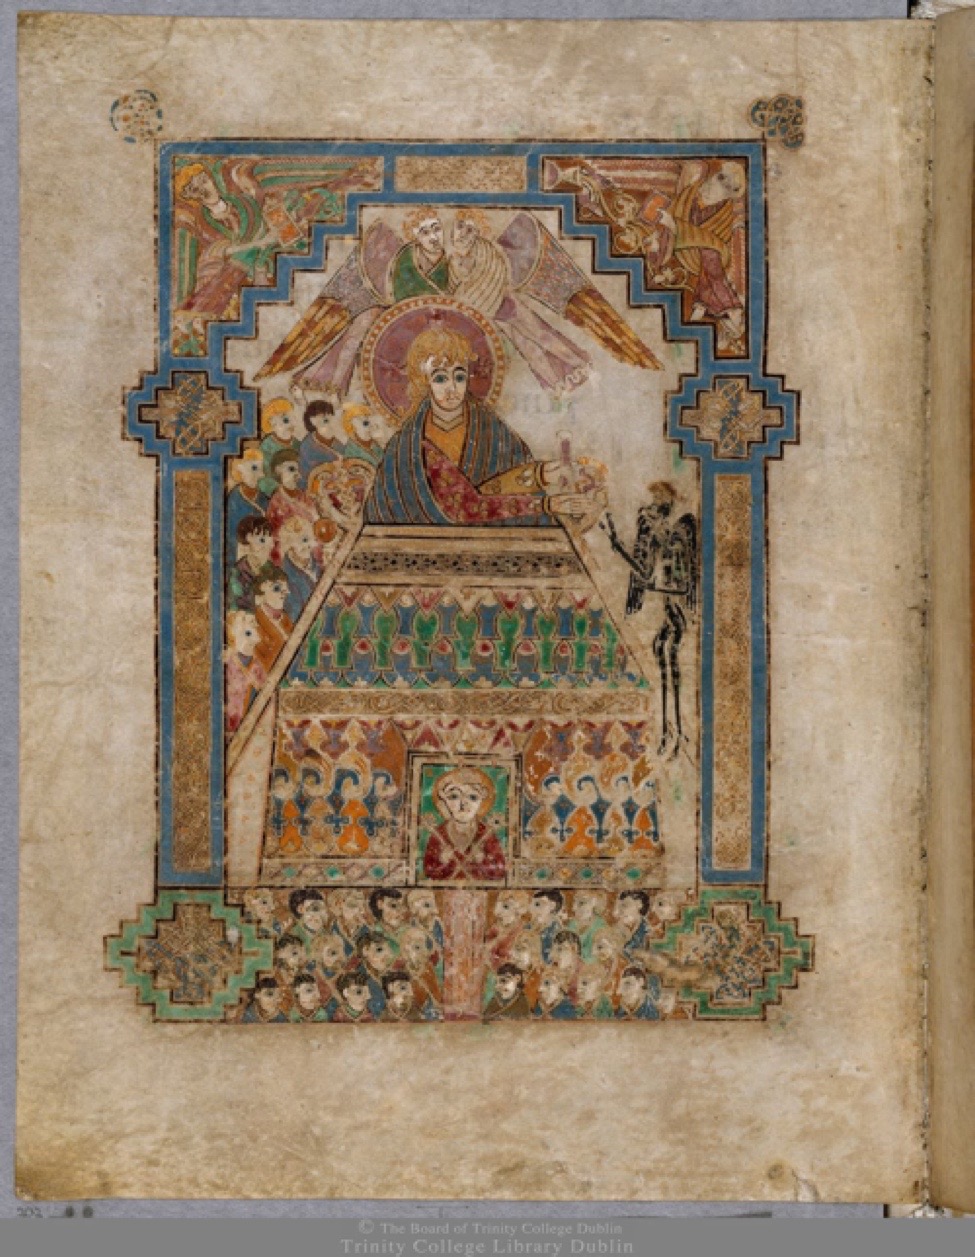 © The Board of Trinity College Dublin
Trinity College Library Dublin